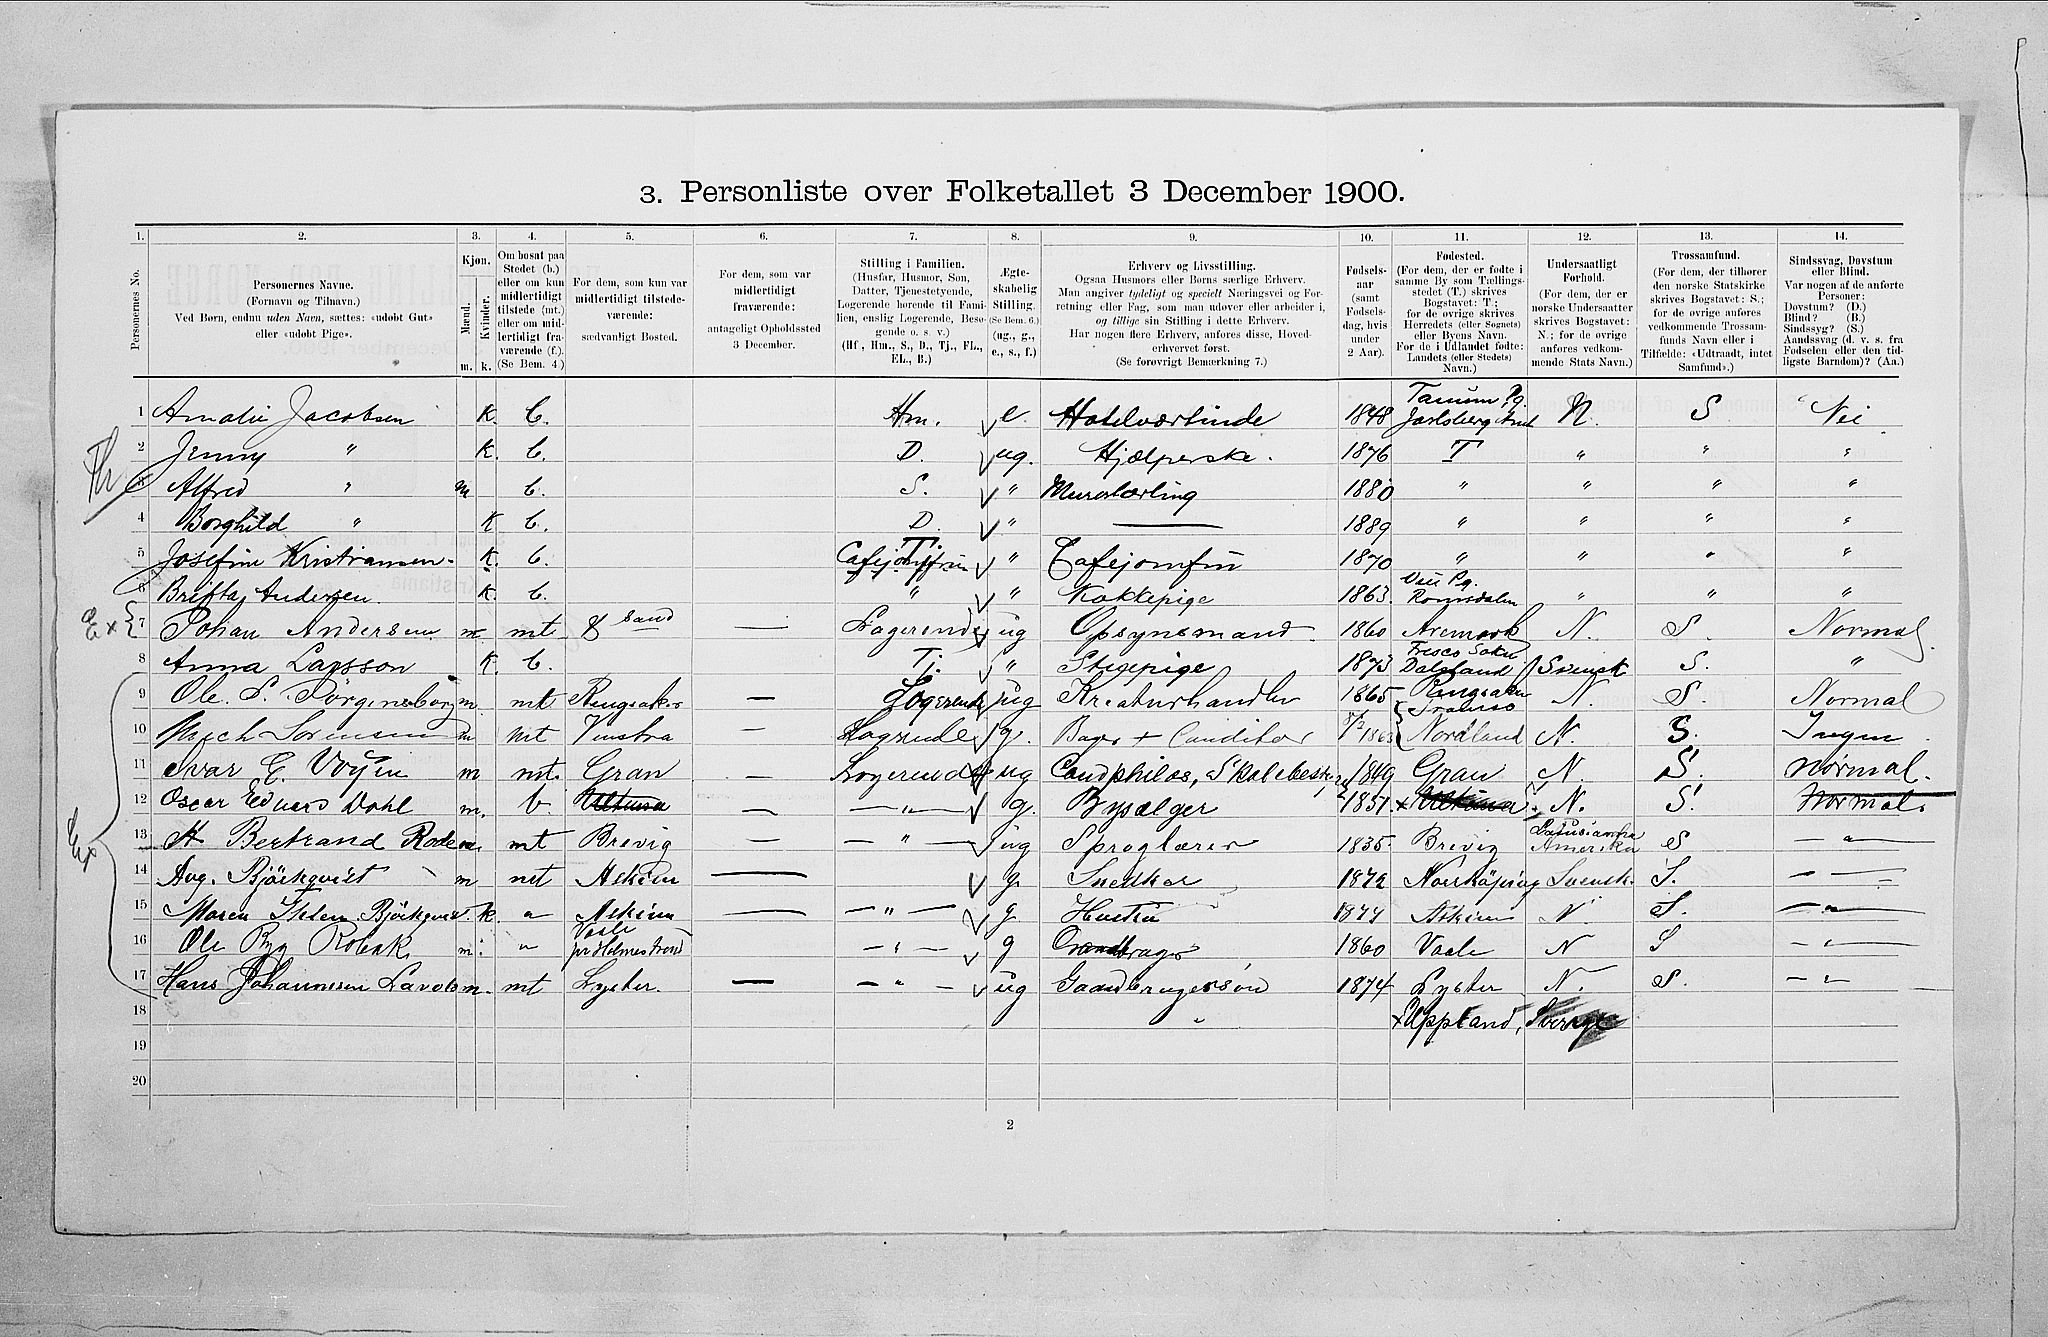 3. Personliste over Folketallet 3 December 1900.
1. 2. 3. 4. 5. 6. 7. 8. 9. 10. 11. 12. 13. 14.
Personernes No.
Personernes Navne.
(Fornavn og Tilnavn.)
Ved Børn, endnu uden Navn, sættes: «udøbt Gut»
eller «udøbt Pige».
Kjøn.
Mænd. Kvinder.
m. k.
Om bosat paa
Stedet (b.)
eller om kun
midlertidigt
tilstede (mt.)
eller om mid-
lertidigt fra-
værende (f.).
(Se Bem. 4.)
For dem, som kun var
midlertidigt tilstede-
værende:
sædvanligt Bosted.
For dem, som var
midlertidigt
fraværende:
antageligt Opholdssted
3 December.
Stilling i Familien.
(Husfar, Husmor, Søn,
Datter, Tjenestetyende,
Logerende hørende til Fami-
lien, enslig Logerende, Besø-
gende o. s. v.)
(Hf, Hm., S., D., Tj., FL.,
EL., B.)
Ægte-
skabelig
Stilling.
(Se Bem. 6.)
(ug., g.,
e., s., f.)
Erhverv og Livsstilling.
Ogsaa Husmors eller Børns særlige Erhverv.
Man angiver tydeligt og specielt Næringsvei og For-
retning eller Fag, som man udøver eller arbeider i,
og tillige sin Stilling i dette Erhverv.
Har nogen flere Erhverv, anføres disse, Hoved-
erhvervet først.
(Se forøvrigt Bemærkning 7.)
Fødsels-
aar
(samt
Fødsels-
dag, hvis
under
2 Aar).
Fødested.
(For dem, der er fødte i
samme By som Tællings-
stedet (T.) skrives
Bogstavet: T.;
for de øvrige skrives
Herredets (eller Sognets)
eller Byens Navn.
For de i Udlandet fødte:
Landets (eller Stedets)
Navn.)
Undersaatligt
Forhold.
(For dem, der er
norske Undersaatter
skrives Bogstavet:
N.; for de øvrige
anføres vedkom-
mende Stats Navn.)
Trossamfund.
(For dem, der tilhører
den norske Statskirke
skrives Bogstavet: S.;
for de øvrige anføres
vedkommende Trossam-
funds Navn eller i
Tilfælde: «Udtraadt, intet
Samfund».)
Sindssvag, Døvstum
eller Blind.
Var nogen af de anførte
Personer:
Døvstum? (D.)
Blind? (B.)
Sindssyg? (S.)
Aandssvag (d. v. s. fra
Fødselen eller den tid-
ligste Barndom)? (Aa.)
1 Amalie Jacobsen K. b. Hm. e. Hotelværtinde 1848 N. S. Nei
2 Jenny " K. b. D. ug. Hjælperske. 1876 T " " "
3 Alfred " m b. S. " Murerlærling 1880 " " " "
4 Borghild " K b. D. " — 1889 " " " "
5 Josefine Kristiansen K. b. Cafejomfru " Cafejomfru 1870 " " " "
6 Andersen. K. b. " " Kokkepige 1863. Romsdalen " " "
7 Johan Andersen m mt — Logerende ug Opsynsmand. 1860 Aremark N. S. Normal.
8 Anna Larsson K. b. Tj. " Stuepige 1873 Dalsland Svensk S. "
9 Ole m. mt Ringsaker — Logerende ug Kreaturhandler 1865 Ringsaker N. S. Normal
10 Sørensen m mt Vinstra — Logerende g. Bager + Conditor Tromsø Nordland N. S. Ingen
11 Ivar E. m mt. Gran — Logerende ug Candphilos, 1849 Gran N. S. Normal.
12 Oscar Edvard Dahl m. b — — " — g. Bysælger 1851 x N. S. Normal.
13 Bertrand m. mt Brevig — — " — ug Sproglærer 1835 Brevig Amerika S — " —
14 Aug. Björkqvist m mt Askim — g. Snedker 1872 Norrköping Svensk. S. — " —
15 Maren Björkqvist k. " Askim — — " — g Hustru 1877 Askim N. S. — " —
16 Ole m. " Vaale pr Holmestrand — " — g 1860 Vaale N S — " —
17 Hans Johannesen m. mt Lyster. — — " — ug Gaardbrugersøn 1874 Lyster N. S. — " —
18 x Uppland, Sverige
19
20
2